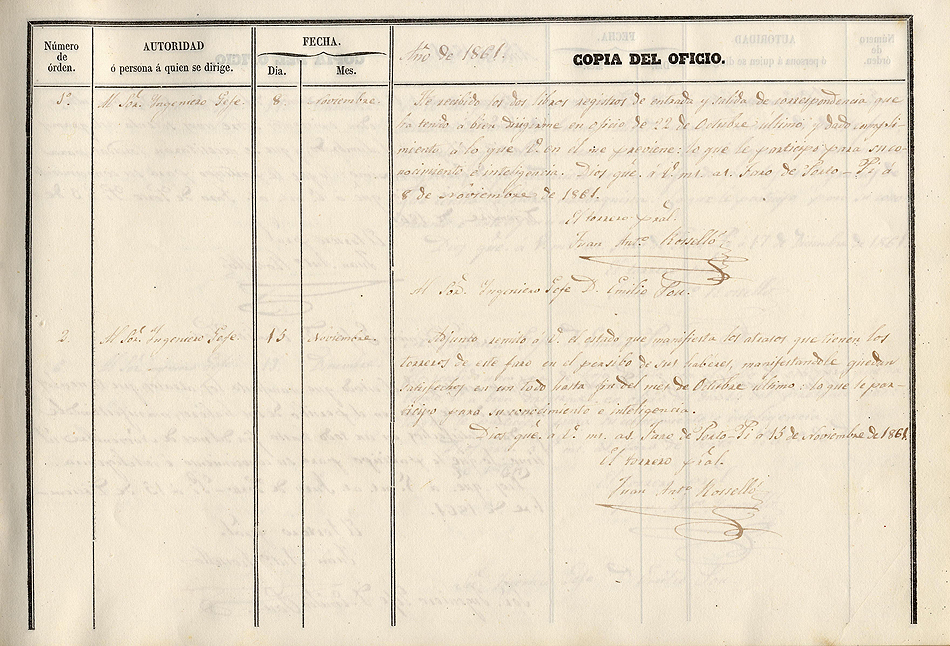 Número de órden.
AUTORIDAD ó persona á quien se dirige.
FECHA.
Dia.
Mes.
Año de 1861.
COPIA DEL OFICIO.
1º.
Al Sor. Ingeniero Gefe.
8.
Noviembre.
He recibido los dos libros registros de entrada y salida de correspondencia que
ha tenido á bien dirigirme en oficio de 22 de Octubre ultimo, y dado cumpli-
miento á lo que V. en el me previene: lo que le participo para su co-
nocimiento é inteligencia. Dios gue. á V. ms. as. Faro de Porto-Pi á
8 de Noviembre de 1861.
El torrero pral.
Juan Anto. Rosselló
Al Sor. Ingeniero Gefe D. Emilio Pou.
2.
Al Sor. Ingeniero Gefe.
13.
Noviembre.
Adjunto remito á V. el estado que manifiesta los atrasos que tienen los
torreros de este faro en el percibo de sus haberes, manifestandole quedan
satisfechos en un todo hasta fin del mes de Octubre ultimo: lo que le par-
ticipo para su conocimiento é inteligencia.
Dios gue. á V. ms. as. Faro de Porto-Pi á 13 de Noviembre de 1861.
El torrero pral.
Juan Anto. Rosselló